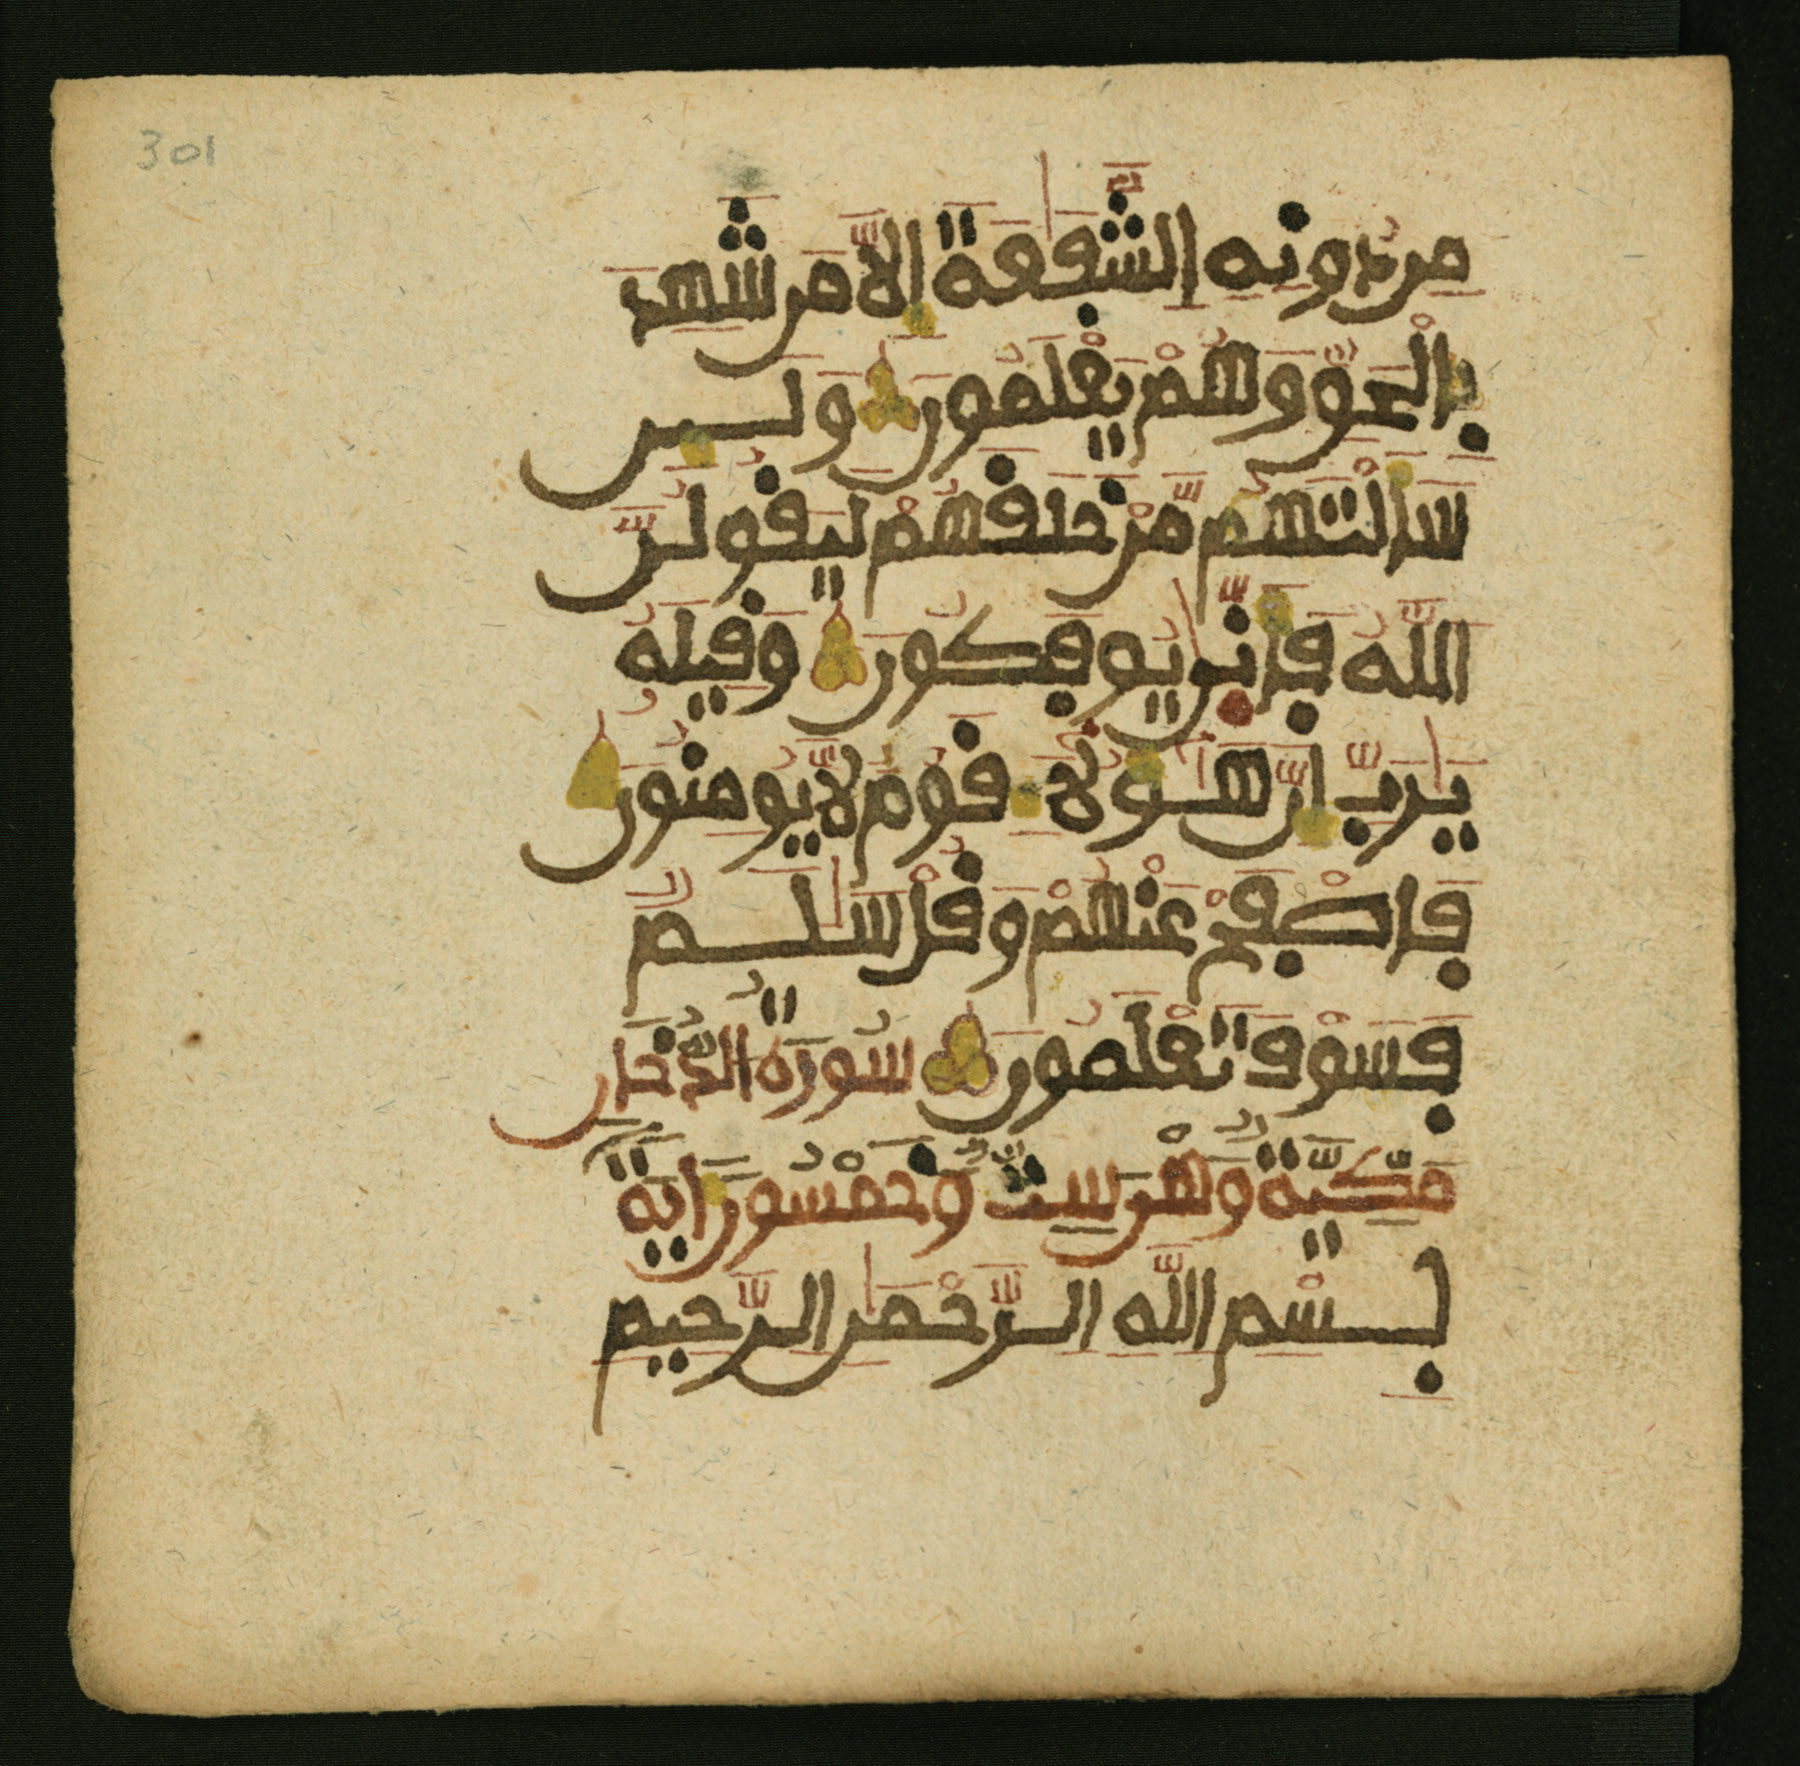 301
مِن دُونِهِ الشَّفَٰعَةَ إِلَّا مَن شَهِدَ
بِالْحَقِّ وَهُمْ يَعْلَمُونَ وَلَئِن
سَأَلْتَهُم مَّنْ خَلَقَهُمْ لَيَقُولُنَّ
اللَّهُ فَأَنَّىٰ يُوفَكُونَ وَقِيلَهُ
يَٰرَبِّ إِنَّ هَٰؤُلَاءِ قَوْمٌ لَّا يُومِنُونَ
فَاصْفَحْ عَنْهُمْ وَقُلْ سَلَٰمٌ
فَسَوْفَ تَعْلَمُونَ سُورَةُ الدُّخَانِ
مَكِّيَّةٌ وَهِيَ سِتٌّ وَخَمْسُونَ ايَةً
بِسْمِ اللَّهِ الرَّحْمَٰنِ الرَّحِيمِ